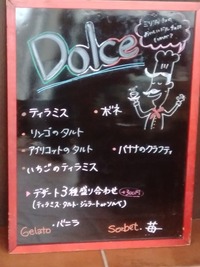 Dolce
・ティラミス
・ボネ
・リンゴのタルト
・アプリコットのタルト
・バナナのクラフティ
・いちごのティラミス
▸ デザート3種盛り合わせ
(ティラミス・タルト・ジェラートorソルベ)
Gelato ・バニラ
Sorbet ・苺